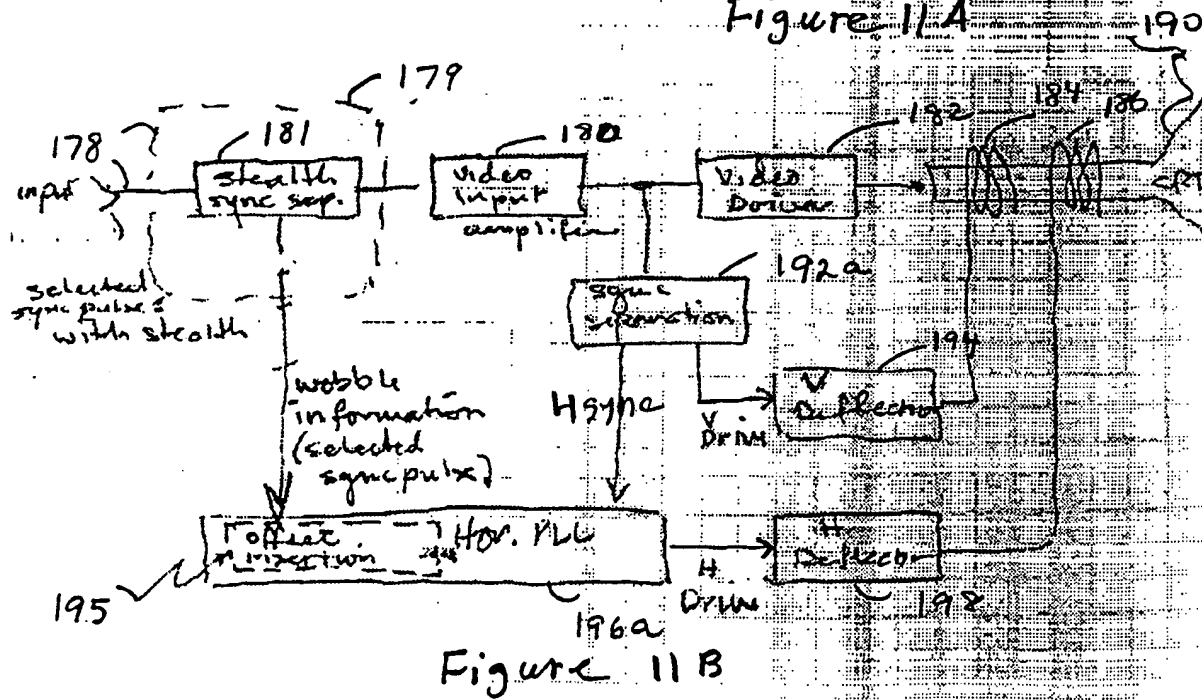 Figure 11A
190
179
178
181
180a
182
184
186
input
stealth
sync sep.
video
input
amplifier
Video
Driver
CRT
192a
selected
sync pulse
with stealth
sync
separation
194
wobble
information
(selected
sync pulse)
H sync
V
Drive
V
Deflection
offset
insertion
Hor. PLL
H
Drive
H
Deflection
195
196a
198
Figure 11B